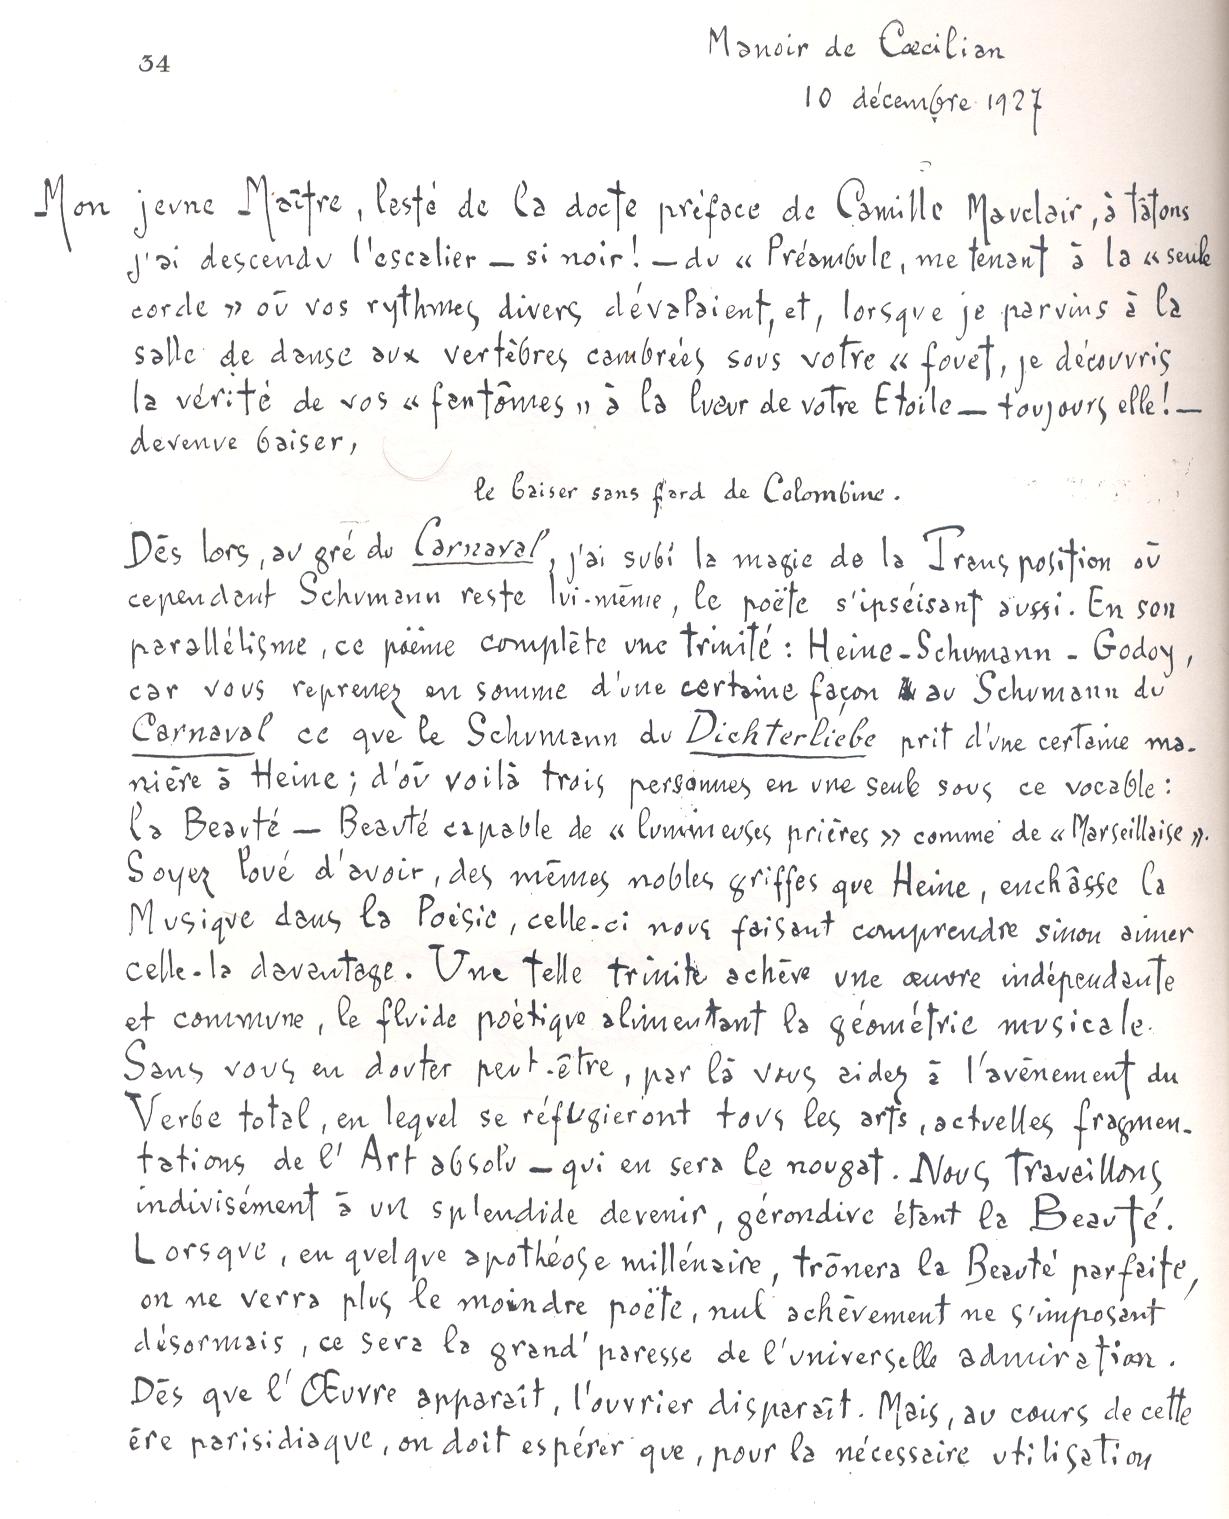 34
Manoir de Cœcilian
10 décembre 1927
Mon jeune Maître, lesté de la docte préface de Camille Mauclair, à tâtons
j'ai descendu l'escalier — si noir ! — du « Préambule, me tenant à la « seule
corde » où vos rythmes divers dévalaient, et, lorsque je parvins à la
salle de danse aux vertèbres cambrées sous votre « fouet, je découvris
la vérité de vos « fantômes » à la lueur de votre Etoile — toujours elle ! —
devenue baiser,
le baiser sans fard de Colombine.
Dès lors, au gré du Carnaval, j'ai subi la magie de la Transposition où
cependant Schumann reste lui-même, le poëte s'ipséisant aussi. En son
parallélisme, ce poëme complète une trinité : Heine - Schumann - Godoy,
car vous reprenez en somme d'une certaine façon au Schumann du
Carnaval ce que le Schumann du Dichterliebe prit d'une certaine ma-
nière à Heine ; d'où voilà trois personnes en une seule sous ce vocable :
la Beauté — Beauté capable de « lumineuses prières » comme de « Marseillaise ».
Soyez loué d'avoir, des mêmes nobles griffes que Heine, enchâsse la
Musique dans la Poésie, celle-ci nous faisant comprendre sinon aimer
celle-la davantage. Une telle trinité achève une œuvre indépendante
et commune, le fluide poètique alimentant la géométrie musicale.
Sans vous en douter peut-être, par là vous aidez à l'avènement du
Verbe total, en lequel se réfugieront tous les arts, actuelles fragmen-
tations de l'Art absolu — qui en sera le nougat. Nous travaillons
indivisément à un splendide devenir, gérondive étant la Beauté.
Lorsque, en quelque apothéose millénaire, trônera la Beauté parfaite,
on ne verra plus le moindre poëte, nul achèvement ne s'imposant
désormais, ce sera la grand' paresse de l'universelle admiration.
Dès que l'Œuvre apparaît, l'ouvrier disparaît. Mais, au cours de cette
ère parisidiaque, on doit espérer que, pour la nécessaire utilisation